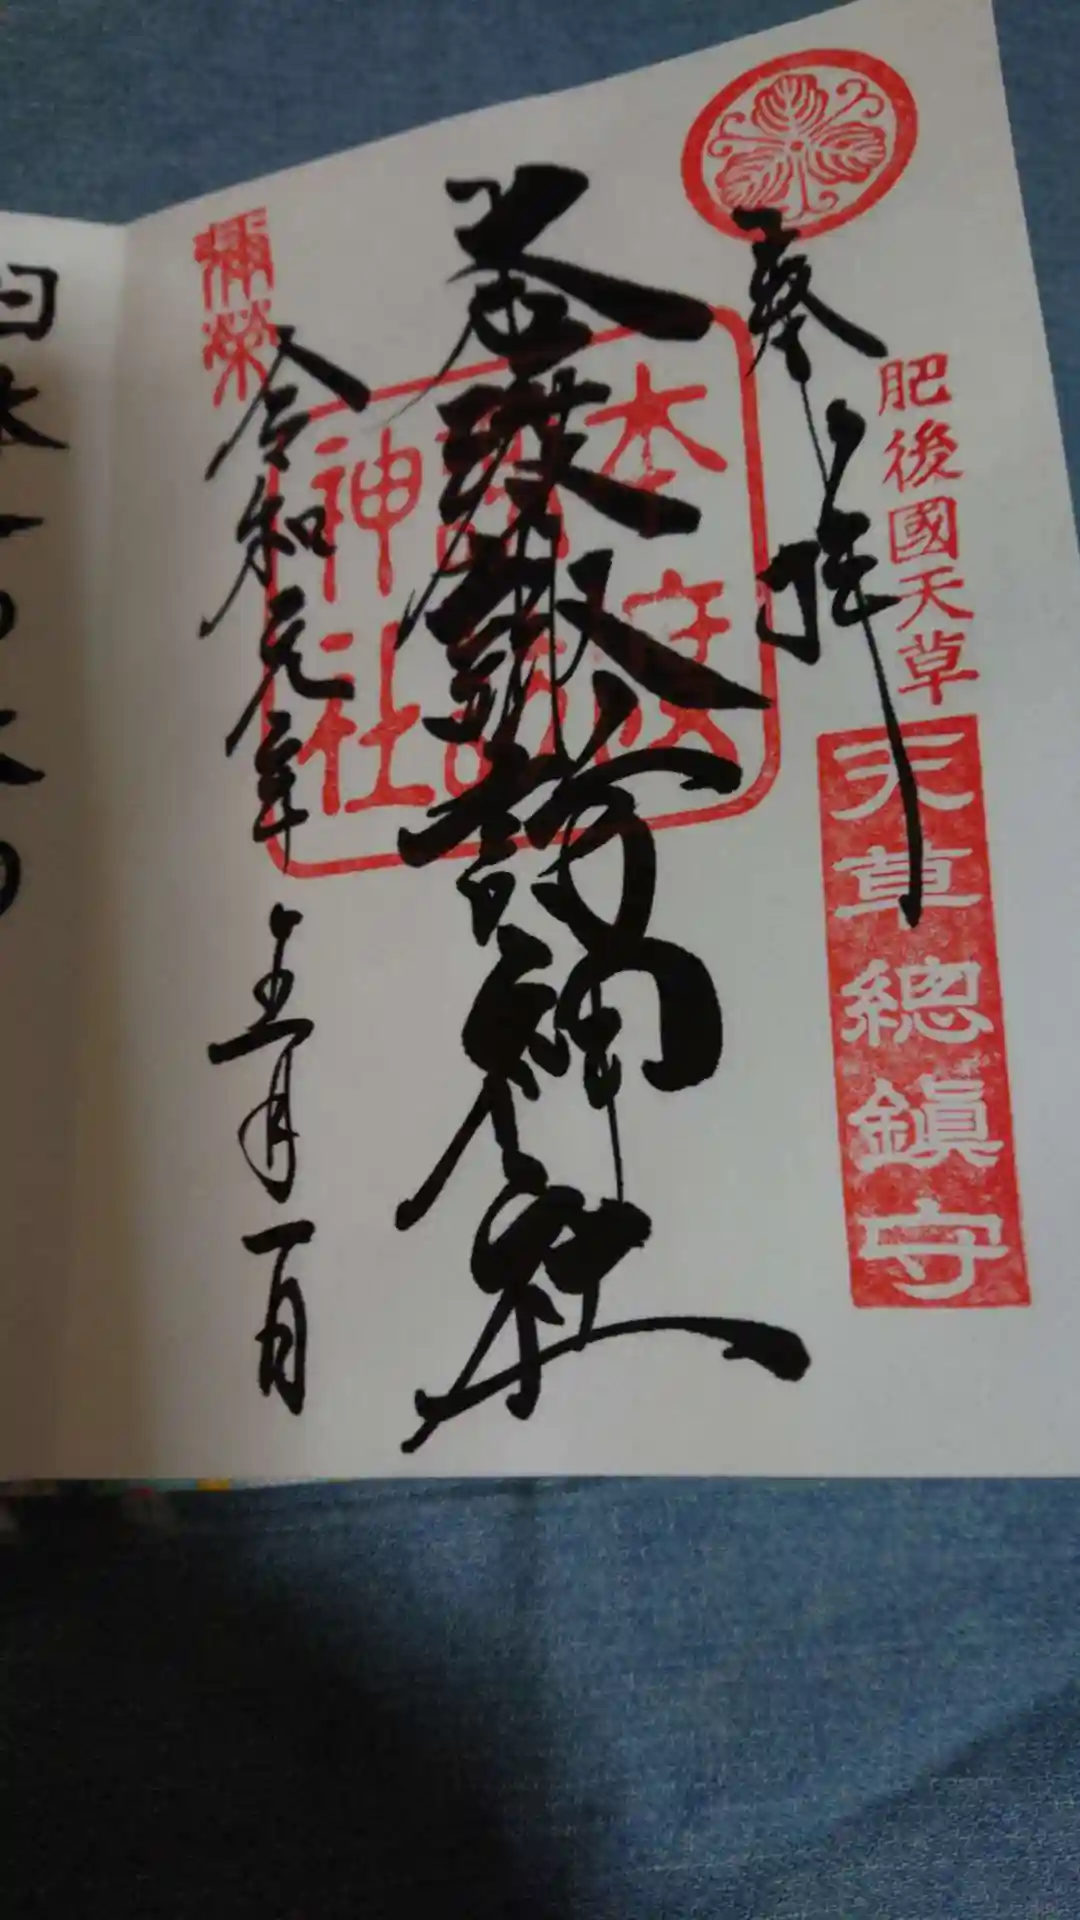 奉拝
肥後國天草
天草總鎮守
諏訪神社
本渡諏訪神社
彌榮
令和元年五月一日
日本一の